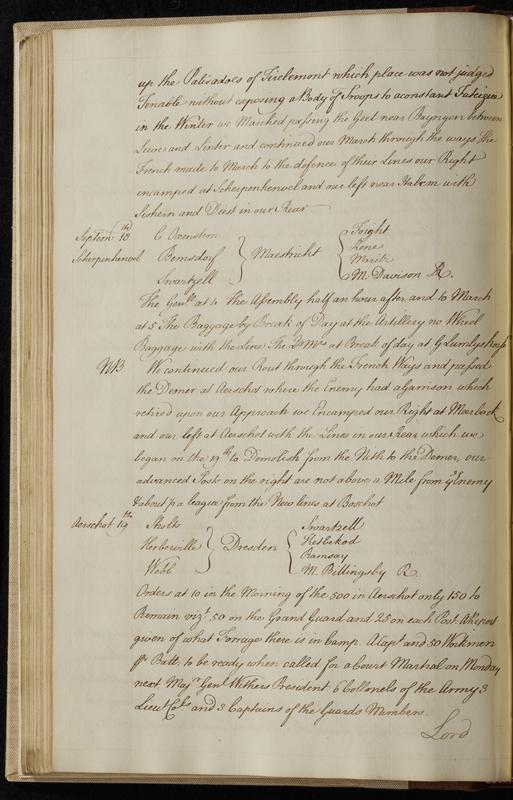 up the Palisadoes of Tirelemont which place was not judged
Tenable without exposing a Body of Troops to a constant Fatigue
in the Winter we Marched passing the Geet near Bayngen between
Lewe and Linter and continued our March through the ways the
French made to March to the defence of their Lines our Right
encamped at Scherpenhevel and our left near Halem with
Sichem and Diest in our Rear
Septemr. 18th C Oxenstern Foight
Scherpenhevel Bernsdorf Maestricht Kene
Swartzell M. Davison R.
The Genll. at 4 the Assembly half an hour after and to March
at 5 The Baggage by Break of Day at the Artillery no Wheel
Baggage with the Line The Qr Mrs at Break of day at
NB. We continued our Rout through the French Ways and passed
the Demer at Aerschot where the Enemy had a Garrison which
retired upon our Approach we Encamped our Right at
and our left at Aerschot with the Lines in our Rear which we
began on the 19th to Demolish from the Nith to the Demer, our
advanced Posts on the right are not above a Mile from ye Enemy
& about ½ a league from the New lines at Boschot
Aerschot 19th Sholts Swartzell
Herberville Dresden Ketlekod
Webb Ramsay
M. Billingsby R
Orders at 10 in the Morning of the 500 in Aerschot only 150 to
Remain vizt. 50 on the Grand Guard and 25 on each Post. A Report
given of what Forrage there is in Camp. A Capt and 50 Workmen
pr Batt. to be ready when called for a Court Martial on Monday
next Majr. Genl. Withers President. 6 Collonels of the Army 3
Lieut Cols and 3 Captains of the Guards Members.
Lord